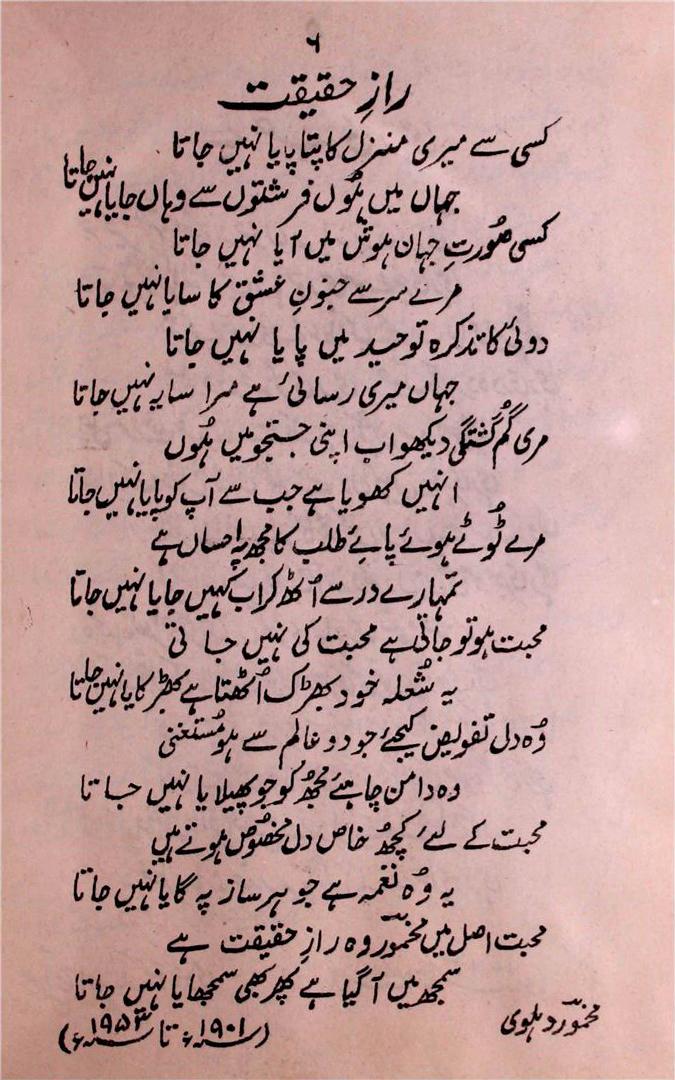 ۶
رازِ حقیقت
کسی سے میری منزل کا پتا پایا نہیں جاتا
جہاں میں ہُوں فرشتوں سے وہاں جایا نہیں جاتا
کسی صُورت جہانِ ہوش میں آیا نہیں جاتا
مرے سر سے جنونِ عشق کا سایا نہیں جاتا
دوئی کا تذکرہ توحید میں پایا نہیں جاتا
جہاں میری رسائی ہے مرا سایہ نہیں جاتا
مری گُم گشتگی دیکھو اب اپنی جستجو میں ہُوں
انہیں کھویا ہے جب سے آپ کو پایا نہیں جاتا
مرے ٹُوٹے ہوئے پائے طلب کا مجھ پہ احساں ہے
تمہارے در سے اُٹھ کر اب کہیں جایا نہیں جاتا
محبت ہو تو جاتی ہے محبت کی نہیں جاتی
یہ شُعلہ خود بھڑک اُٹھتا ہے بھڑکایا نہیں جاتا
وُہ دل تفویض کیجئے جو دو عالم سے ہو مُستغنی
وہ دامن چاہئے مجھ کو جو پھیلایا نہیں جاتا
محبت کے لئے کچھ خاص دل مخصوص ہوتے ہیں
یہ وُہ نغمہ ہے جو ہر ساز پہ گایا نہیں جاتا
محبت اصل میں مخمورؔ وہ رازِ حقیقت ہے
سمجھ میں آ گیا ہے پھر بھی سمجھایا نہیں جاتا
مخمورؔ دہلوی
(۱۹۰۱ء تا ۱۹۵۳ء)